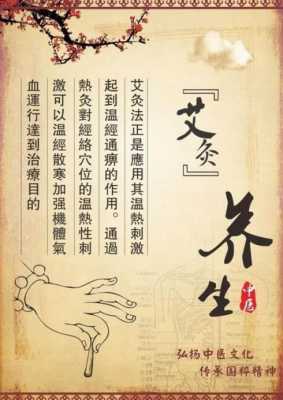 『艾灸』
养生
中医
艾灸法正是應用其溫熱刺激
起到溫經通痹的作用。通過
熱灸對經絡穴位的溫熱性刺
激可以溫經散寒加强機體氣
血運行達到治療目的
弘扬中医文化
传承国粹精神